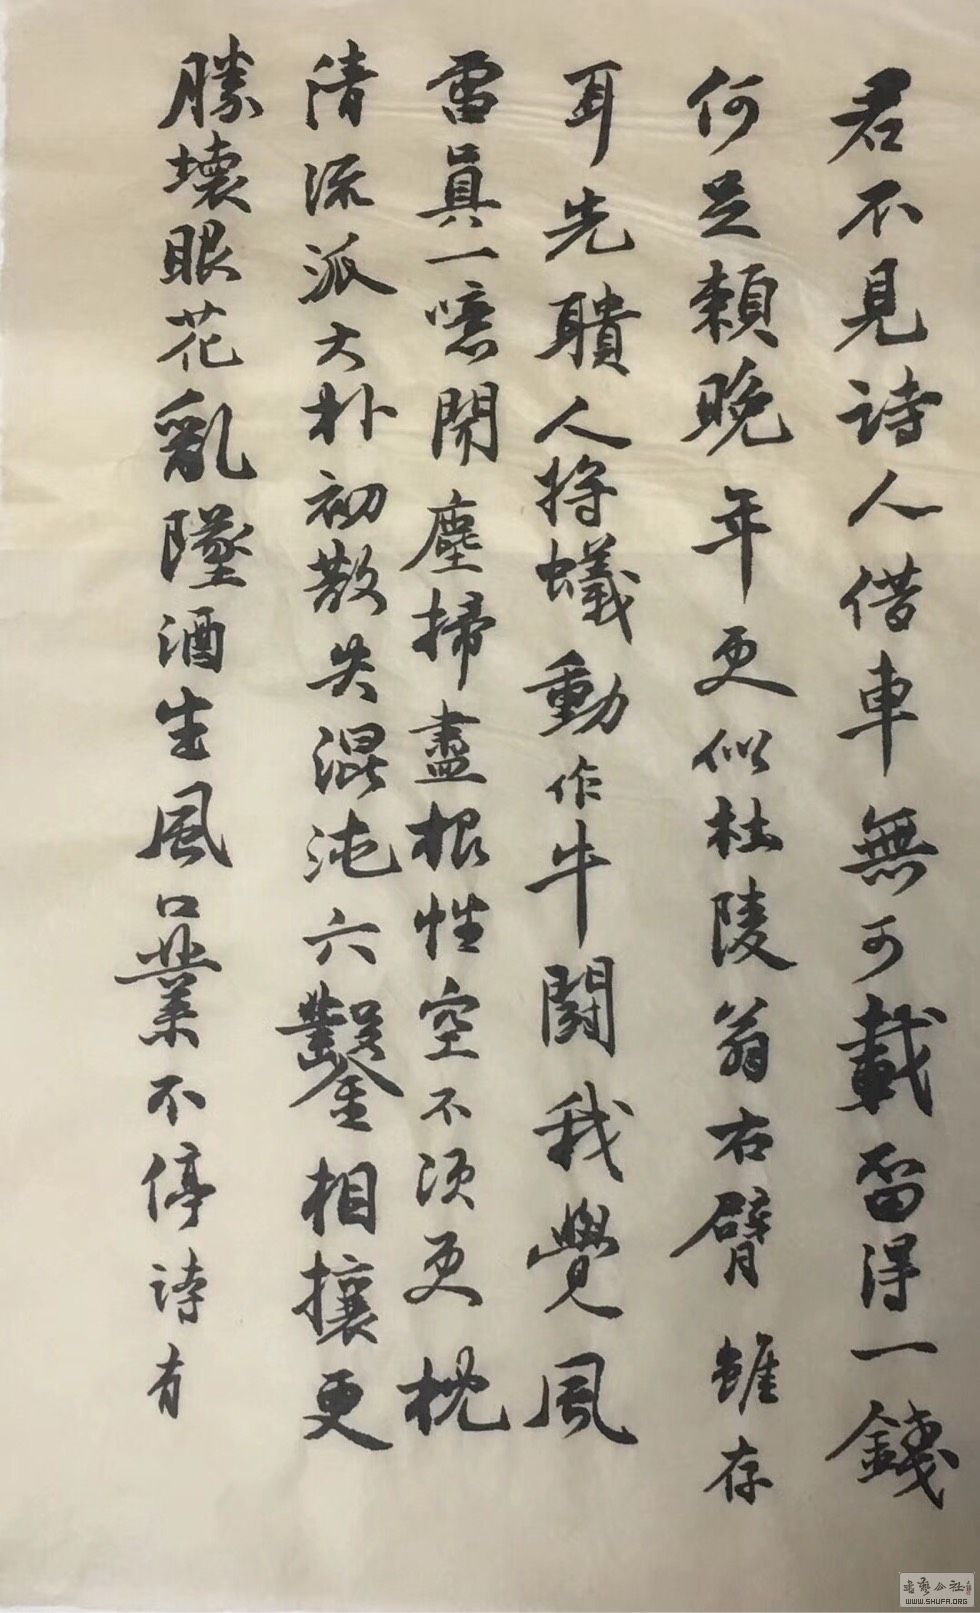 君不見詩人借車無可載留得一錢
何足賴晚年更似杜陵翁右臂雖存
耳先聵人將蟻動作牛鬪我覺風
雷真一噫閒塵掃盡根性空不須更枕
清流派大朴初散失混沌六鑿相攘更
勝壞眼花亂墜酒生風口業不停詩有
書藝公社
WWW.SHUFA.ORG